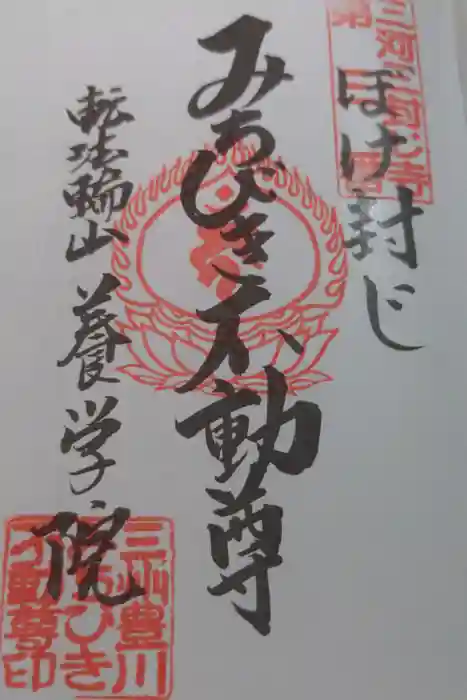 ぼけ封じ
みちびき不動尊
転法輪山 養学院
三州豊川
みちびき
不動尊印